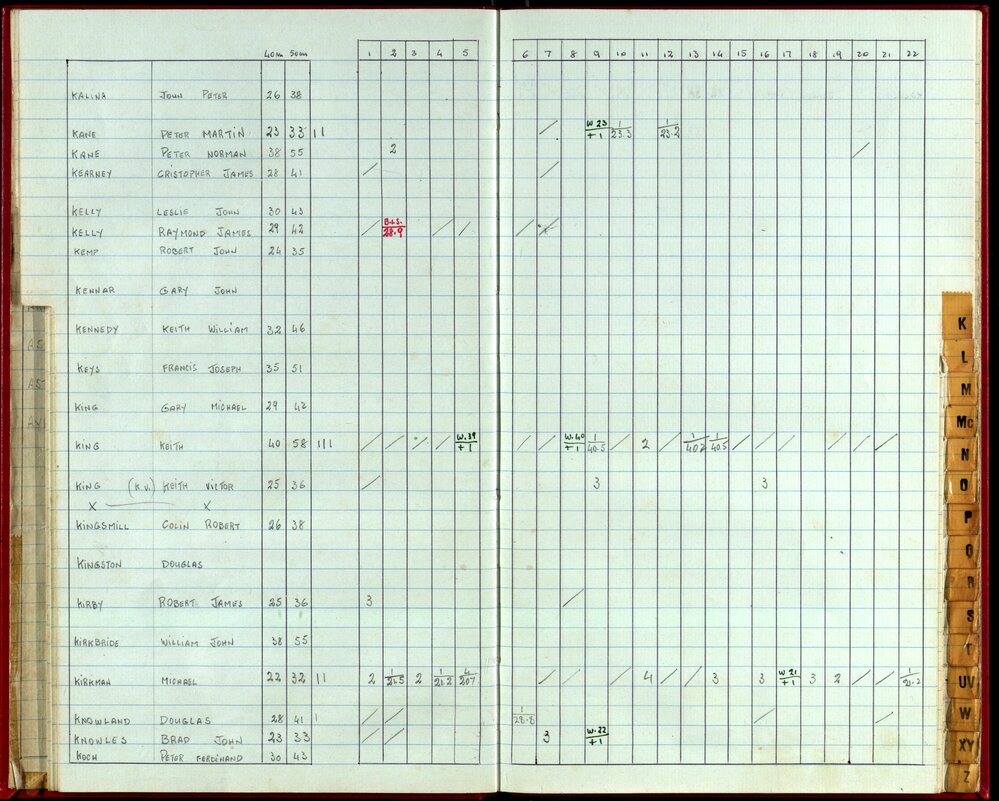 40m 50m 1 2 3 4 5 6 7 8 9 10 11 12 13 14 15 16 17 18 19 20 21 22
KALINA JOHN PETER 26 38
KANE PETER MARTIN 23 33 11 / W.23 +1 1 23.3 1 23.2
KANE PETER NORMAN 38 55 2 /
KEARNEY CRISTOPHER JAMES 28 41 / /
KELLY LESLIE JOHN 30 43
KELLY RAYMOND JAMES 29 42 / B.I.S. 28.9 / / / /
KEMP ROBERT JOHN 24 35
KENNAR GARY JOHN
KENNEDY KEITH WILLIAM 32 46
KEYS FRANCIS JOSEPH 35 51
KING GARY MICHAEL 29 42
KING KEITH 40 58 111 / / / / W.39 +1 / / W.40 +1 1 40.5 / 2 / 1 40.2 1 40.5 / / / / / /
KING (K.V.) KEITH VICTOR 25 36 / 3 3
X X
KINGSMILL COLIN ROBERT 26 38
KINGSTON DOUGLAS
KIRBY ROBERT JAMES 25 36 3 /
KIRKBRIDE WILLIAM JOHN 38 55
KIRKMAN MICHAEL 22 32 11 2 1 21.5 2 1 21.2 4 20.7 / / / 4 / / 3 3 W.21 +1 3 2 / / 1 21.2
KNOWLAND DOUGLAS 28 41 1 / / 1 28.8 / /
KNOWLES BRAD JOHN 23 33 / / 3 W.22 +1
KOCH PETER FERDINAND 30 43
K
L
M
Mc
N
O
P
Q
R
S
T
UV
W
XY
Z